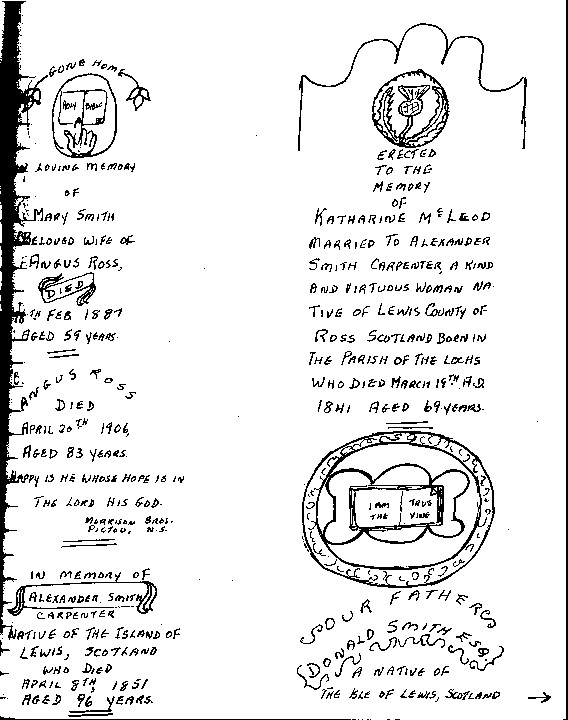 GONE HOME
HOLY BIBLE
LOVING MEMORY
OF
MARY SMITH
BELOVED WIFE OF
ANGUS ROSS,
DIED
TH FEB 1887
AGED 59 YEARS.
ANGUS ROSS
DIED
APRIL 20TH 1906,
AGED 83 YEARS.
HAPPY IS HE WHOSE HOPE IS IN
THE LORD HIS GOD.
MORRISON BROS.
PICTOU, N.S.
IN MEMORY OF
ALEXANDER SMITH
CARPENTER
NATIVE OF THE ISLAND OF
LEWIS, SCOTLAND
WHO DIED
APRIL 8TH, 1851
AGED 96 YEARS.
ERECTED
TO THE
MEMORY
OF
KATHARINE McLEOD
MARRIED TO ALEXANDER
SMITH CARPENTER, A KIND
AND VIRTUOUS WOMAN NA-
TIVE OF LEWIS COUNTY OF
ROSS SCOTLAND BORN IN
THE PARISH OF THE LOCHS
WHO DIED MARCH 19TH A.D.
1841 AGED 69 YEARS.
I AM TRUE
THE VINE
OUR FATHERS
DONALD SMITH ESQ.
A NATIVE OF
THE ISLE OF LEWIS, SCOTLAND